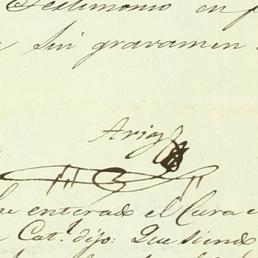 Testimonio en
sin gravamen
Ariz
enterado el Cura
Cat.¹ dijo: Que siendo